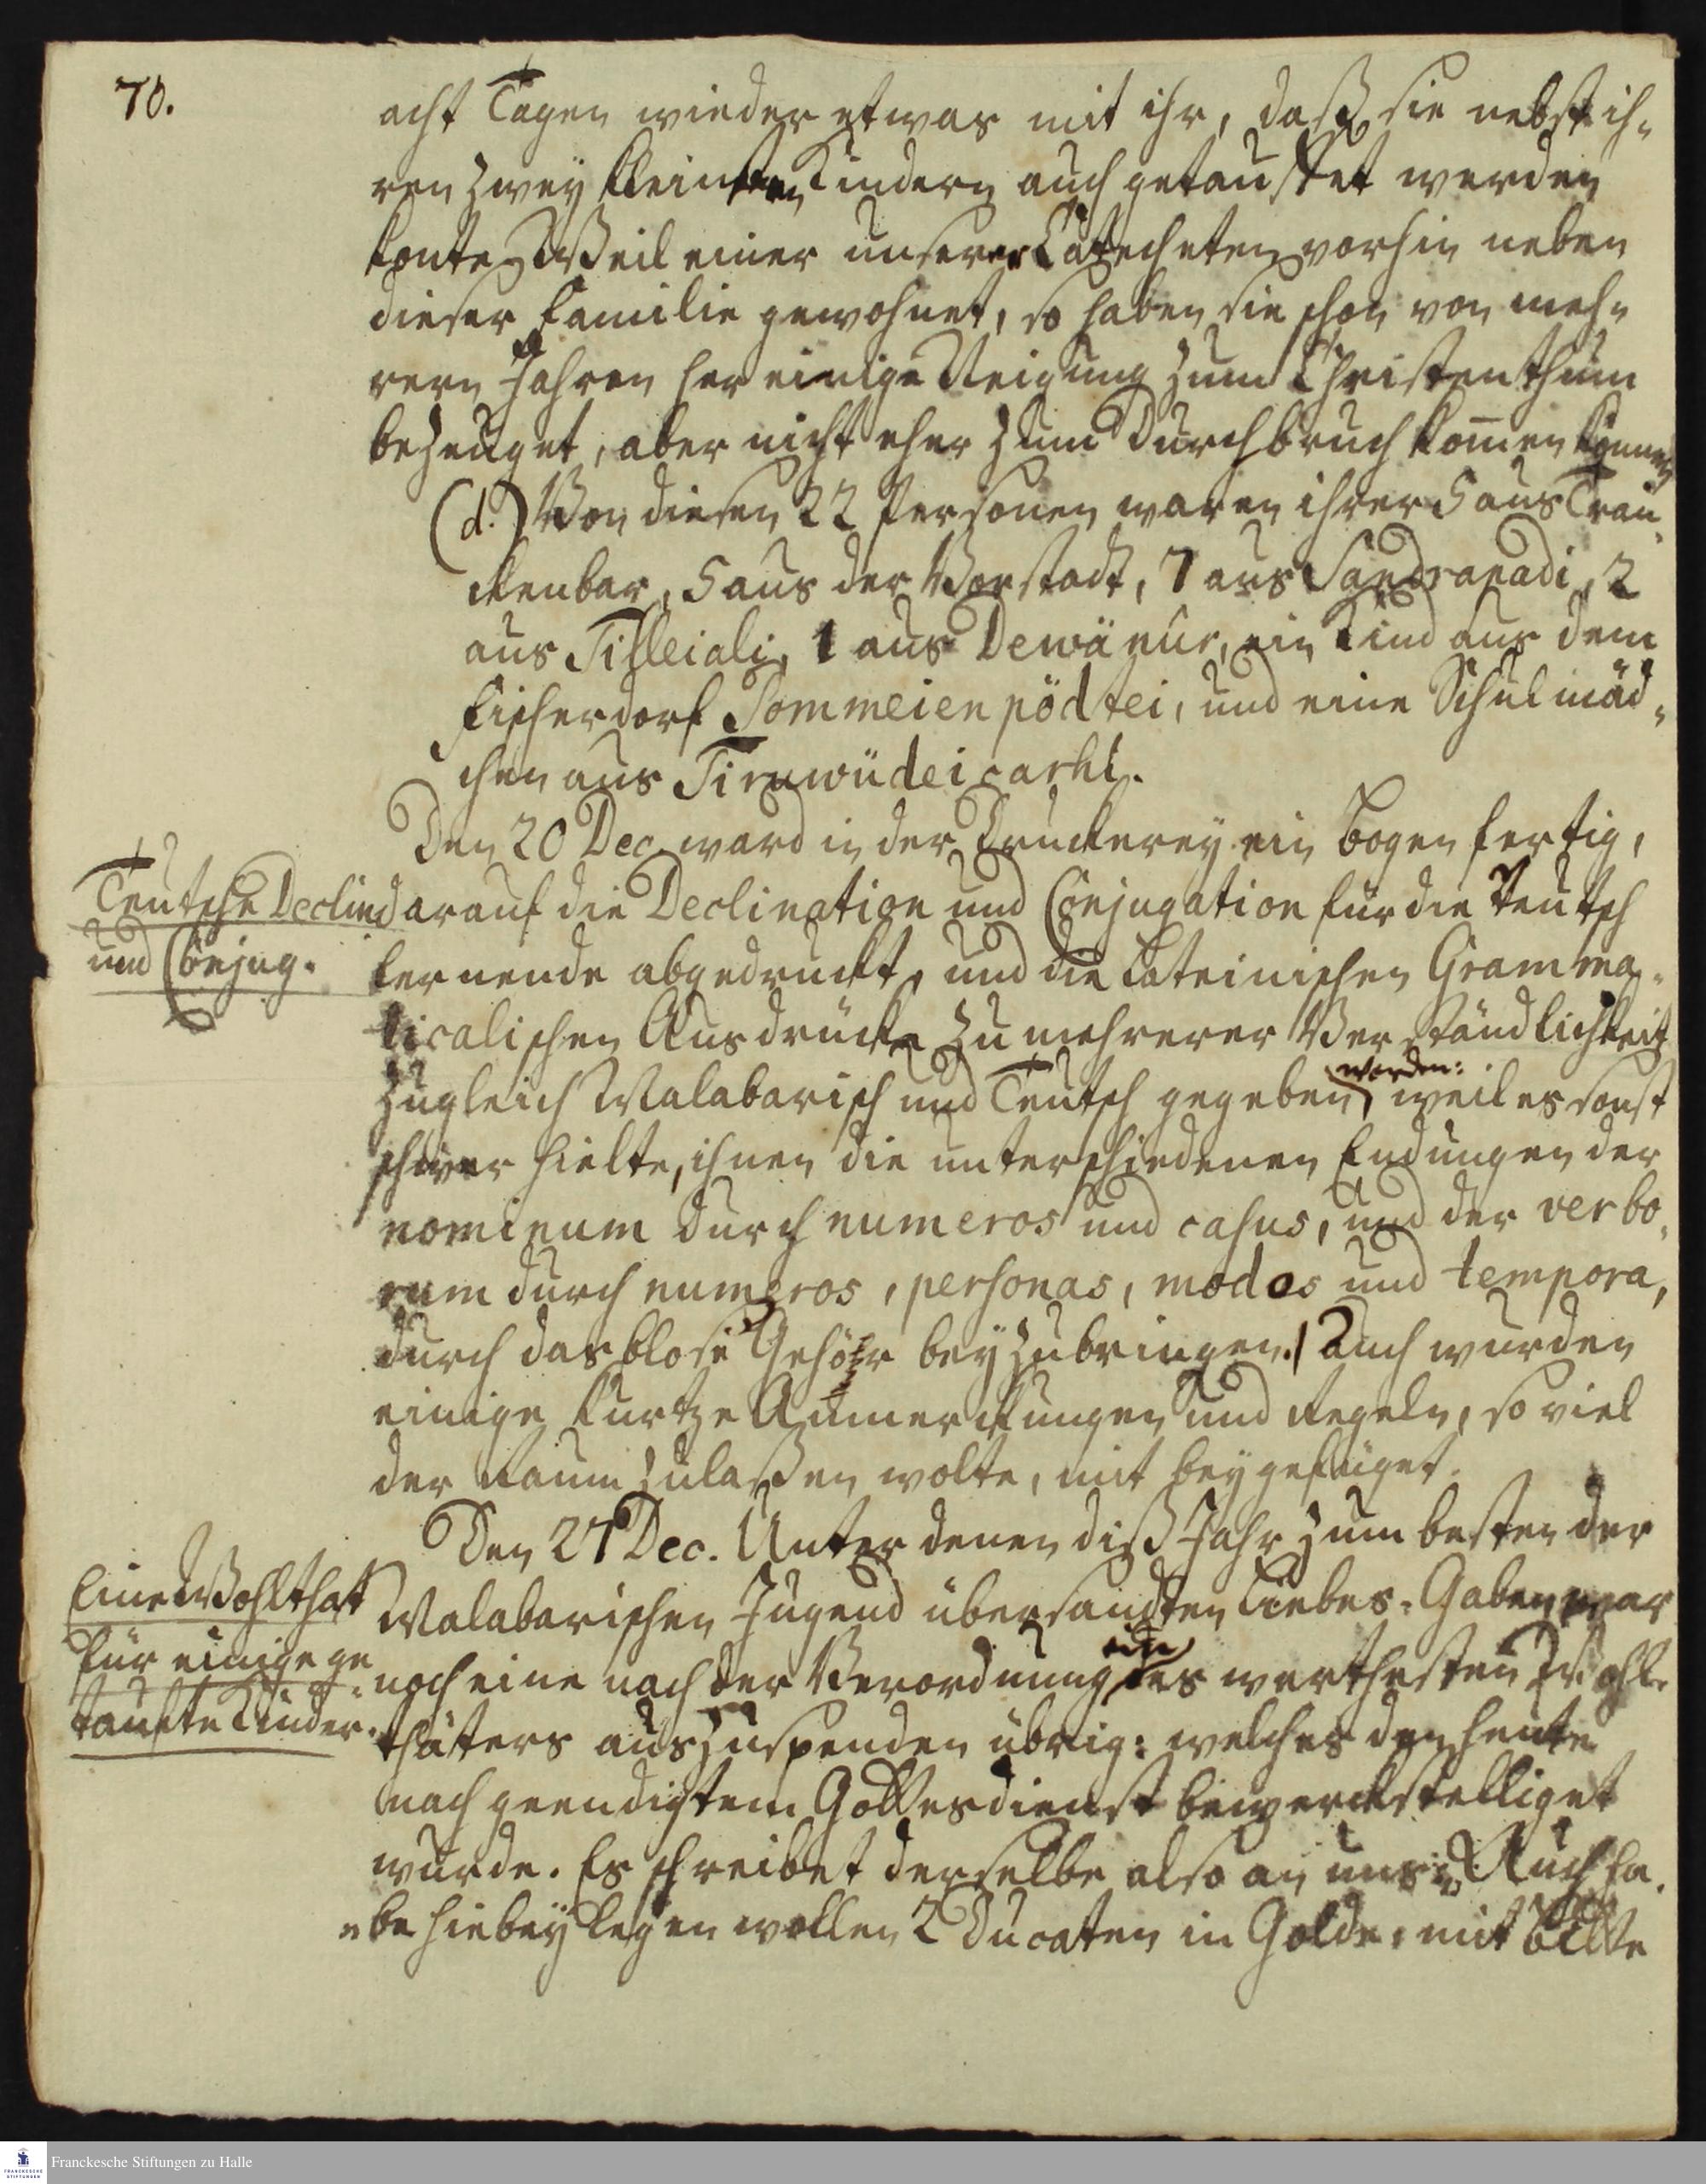 70.
acht Tagen wieder etwas mit ihr, daß sie nebst ih-
ren zwey kleinen Kindern auch getauffet werden
konte. Weil einer unserer Catecheten vorhin neben
dieser Familie gewohnet, so haben sie schon von meh-
rern Jahren her einige Neigung zum Christenthum
bezeuget, aber nicht eher zum Durchbruch komen können
(d.) Von diesen 22 Personen waren ihrer 5 aus Tran-
ckenbar, 5 aus der Vorstadt, 7 aus Sandrapadi, 2
aus Tilleiali, 1 aus Dewänur, ein Kind aus dem
Fischerdorf Sommeienpödtei, und eine Schulmäd-
chen aus Tiruwüdeicarhi.
Den 20 Dec. ward in der Druckerey ein Bogen fertig,
Teutsche Declin
und Conjug.
darauf die Declination und Conjugation für die Teutsch
lernende abgedruckt, und die Lateinischen Gramma-
ticalischen Ausdrücke zu mehrerer Verständlichkeit
zugleich Malabarisch und Teutsch gegeben worden: weil es sonst
schwer hielte, ihnen die unterschiedenen Endungen der
nominum durch numeros und casus, und der verbo-
rum durch numeros, personas, modos und tempora,
durch das blose Gehör beyzubringen. Auch wurden
einige kurtze Anmerckungen und Regeln, so viel
der Raum zulaßen wolte, mit beygefüget.
Den 27 Dec. Unter denen diß Jahr zum besten der
Eine Wohlthat
für einige ge-
taufte Kinder.
Malabarischen Jugend übersandten Liebes-Gaben war
noch eine nach der Verordnung des werthesten Wohl-
thäters auszuspenden übrig: welches den heute
nach geendigtem Gottesdienst bewerckstelliget
wurde. Es schreibet derselbe also an uns: Auch ha-
"be hiebey legen wollen 2 Ducaten in Golde, mit bitte
Franckesche Stiftungen zu Halle